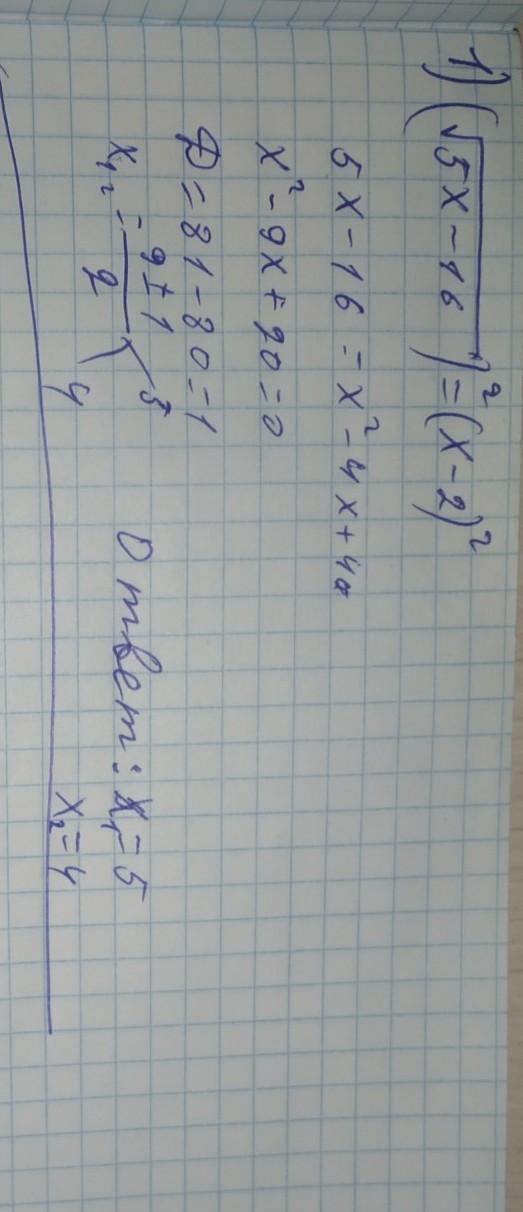 1) (√5x-16)² = (x-2)²
5x-16 = x²-4x+4
x²-9x+20=0
D = 81-80=1
x₁,₂ = 9±1 / 2
5
4
Ответ: x₁=5
x₂=4